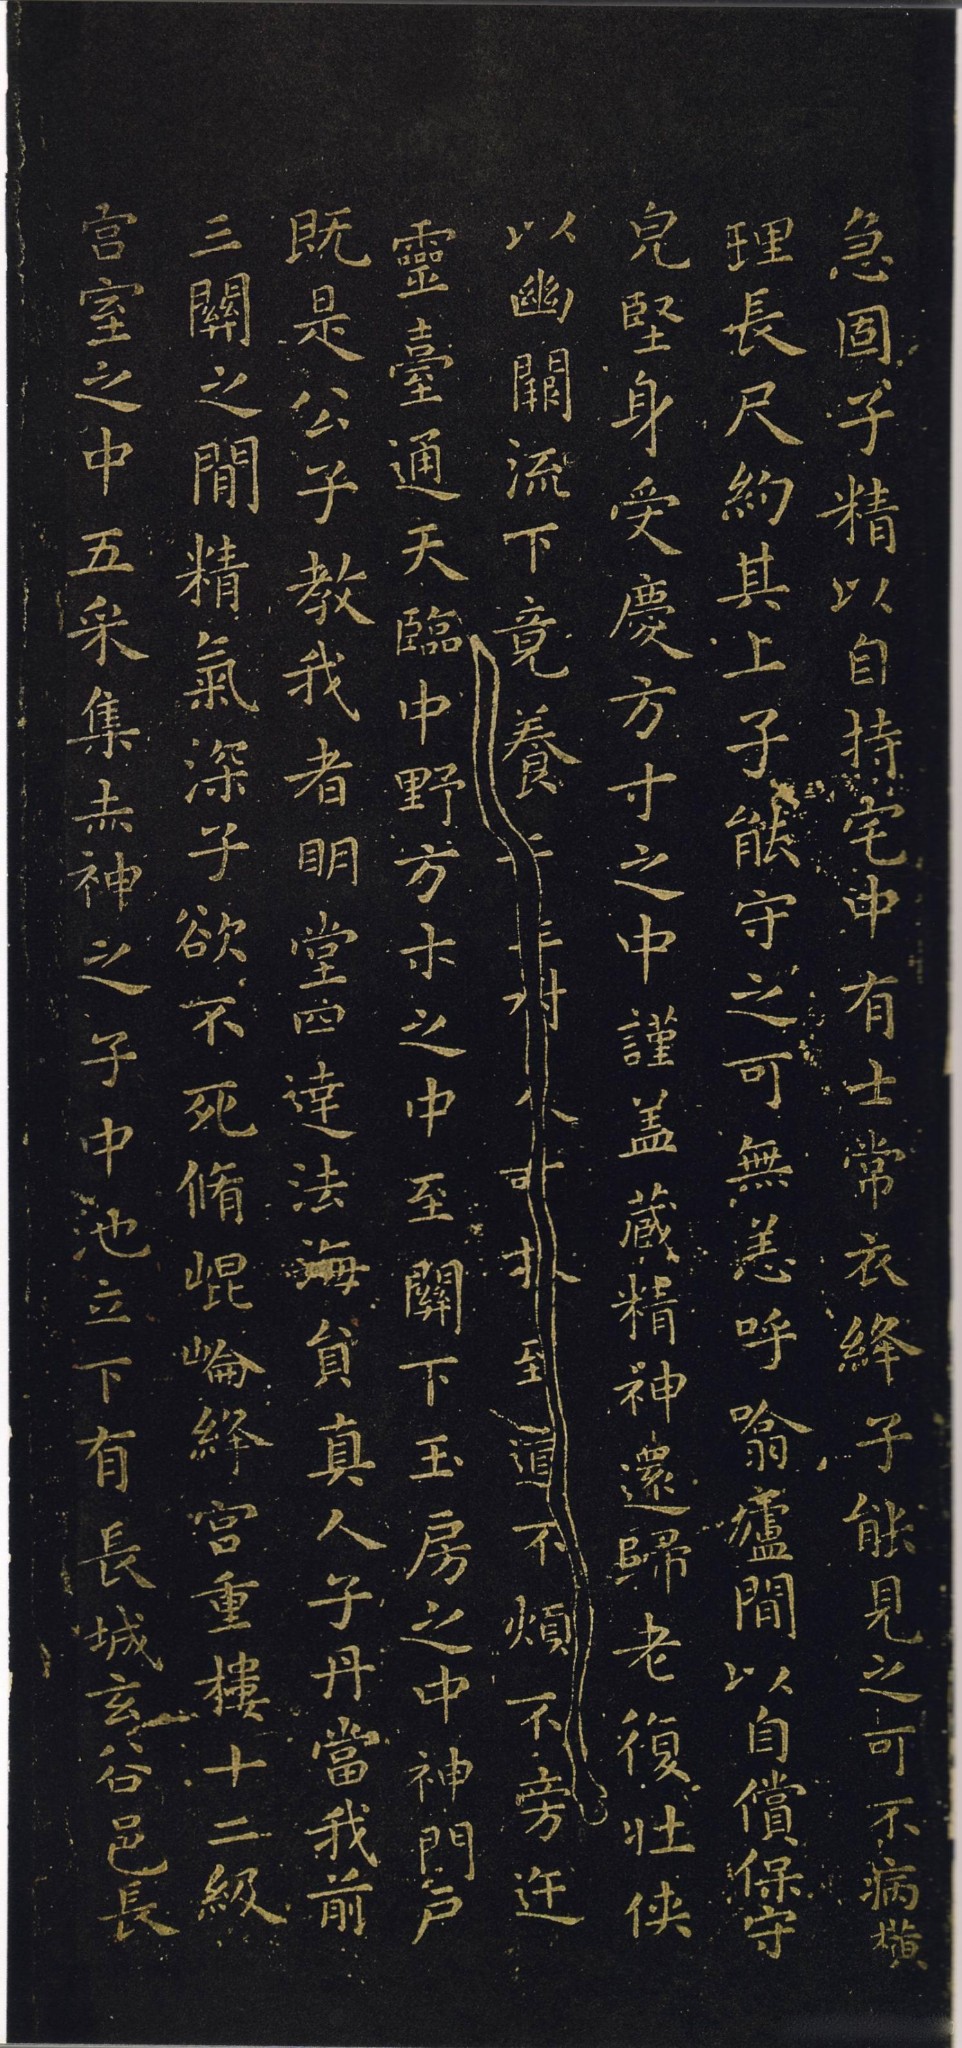 急固子精以自持宅中有士常衣絳子能見之可不病橫
理長尺約其上子能守之可無恙呼噏廬間以自償保守
皃堅身受慶方寸之中謹盖藏精神還歸老復壯俠
以幽闕流下竟養至道不煩不旁迕
靈臺通天臨中野方寸之中至關下玉房之中神門户
既是公子教我者明堂四達法海貟真人子丹當我前
三關之間精氣深子欲不死脩崐崘絳宮重樓十二級
宮室之中五采集赤神之子中池立下有長城玄谷邑長